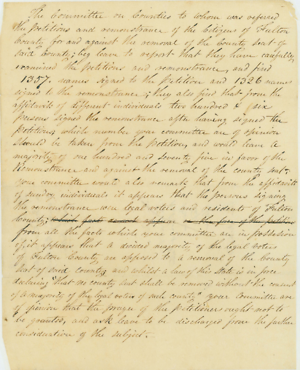 The Committee on Counties to whom was referred
the petitions and remonstrance of the Citizens of Fulton
County for and against the removal of the County Seat of
said County, beg leave to report that they have carefully
examined the petitions and remonstrance, and find
1357 names signed to the Petition and 1326 names
signed to the remonstrance; they also find that from the
affidavits of different individuals two hundred & six
persons signed the remonstrance after having signed the
petition, which number your committee are of opinion
should be taken from the petition, and would leave a
majority of one hundred and seventy five in favor of the
remonstrance and against the removal of the county seat.
your committee would also remark that from the affidavits
of sundry individuals it appears that the persons signing
the remonstrance were legal voters and residents of Fulton
County; which fact does not appear on the face of the petition
from all the facts which your committee are in possession
of, it appears that a decided majority of the legal voters
of Fulton County are opposed to a removal of the County
Seat of said county, and whilst a law of this State is in force
declaring that no county seat shall be removed without the consent
of a majority of the legal voters of such county, your Committee are
of opinion that the prayer of the Petitioners ought not to
be granted, and ask leave to be discharged from the further
consideration of the subject.